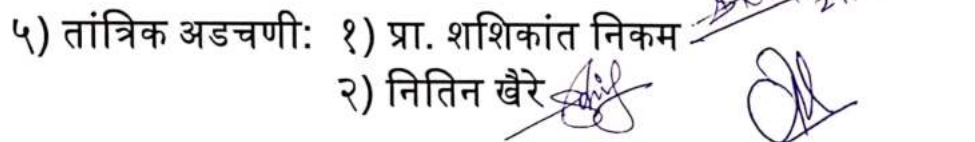 ५) तांत्रिक अडचणी: १) प्रा. शशिकांत निकम
२) नितिन खैरे